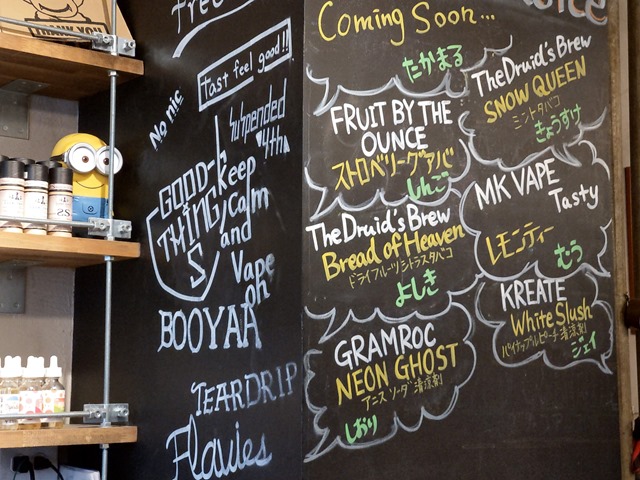 THANK YOU
free
tast feel good!!
No nic
Suspended
4th
GOOD
THING
S
keep
calm
and
Vape
on
BOOYAH
TEARDRIP
Flavies
Coming Soon...
たかまる
FRUIT BY THE
OUNCE
ストロベリーグアバ
しんご
The Druid's Brew
Bread of Heaven
ドライフルーツシトラスタバコ
よしき
GRAMROC
NEON GHOST
アニス ソーダ 清涼剤
しおり
The Druid's Brew
SNOW QUEEN
ミントタバコ
きょうすけ
MK VAPE
Tasty
レモンティー
むう
KREATE
White Slush
パイナップルピーチ清涼剤
ジェイ